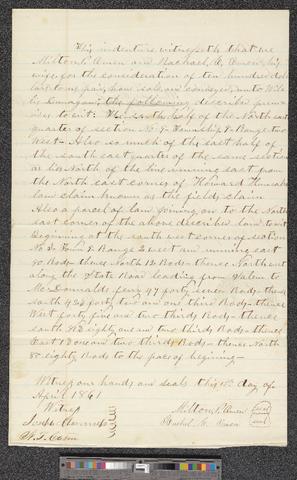 This indenture witnesseth that we
Milton Amen and Rachael A. Amen his
wife for the consideration of ten hundred dol
lars to me paid, have sold, and conveyed, unto
the following described prem
ises to wit: The half of the North east
quarter of section No 9 Township 9 Range two
West Also so much of the east half of
the south east quarter of the same section
as lies North of the line running east from
the North east corner of Thomas
land claim known as the fields claim
Also a parcel of land joining on to the North
east corner of the above described land to wit
Beginning at the south west corner of section
No 3 Town 9 Range 2 west and running east
40 Rods thence North 12 Rods thence Northeast
along the State Road leading from Salem to
McDonalds ferry 47 forty seven Rods thence
North 42 forty two and one third Rods thence
West forty five and two thirds Rods thence
south 81 eighty one and two thirds Rods thence
East 13 one and two thirds Rods thence North
80 eighty Rods to the place of begining
Witness our hands and seals this day of
April 1861
Witness
Milton Amen seal
Rachel A. Amen seal